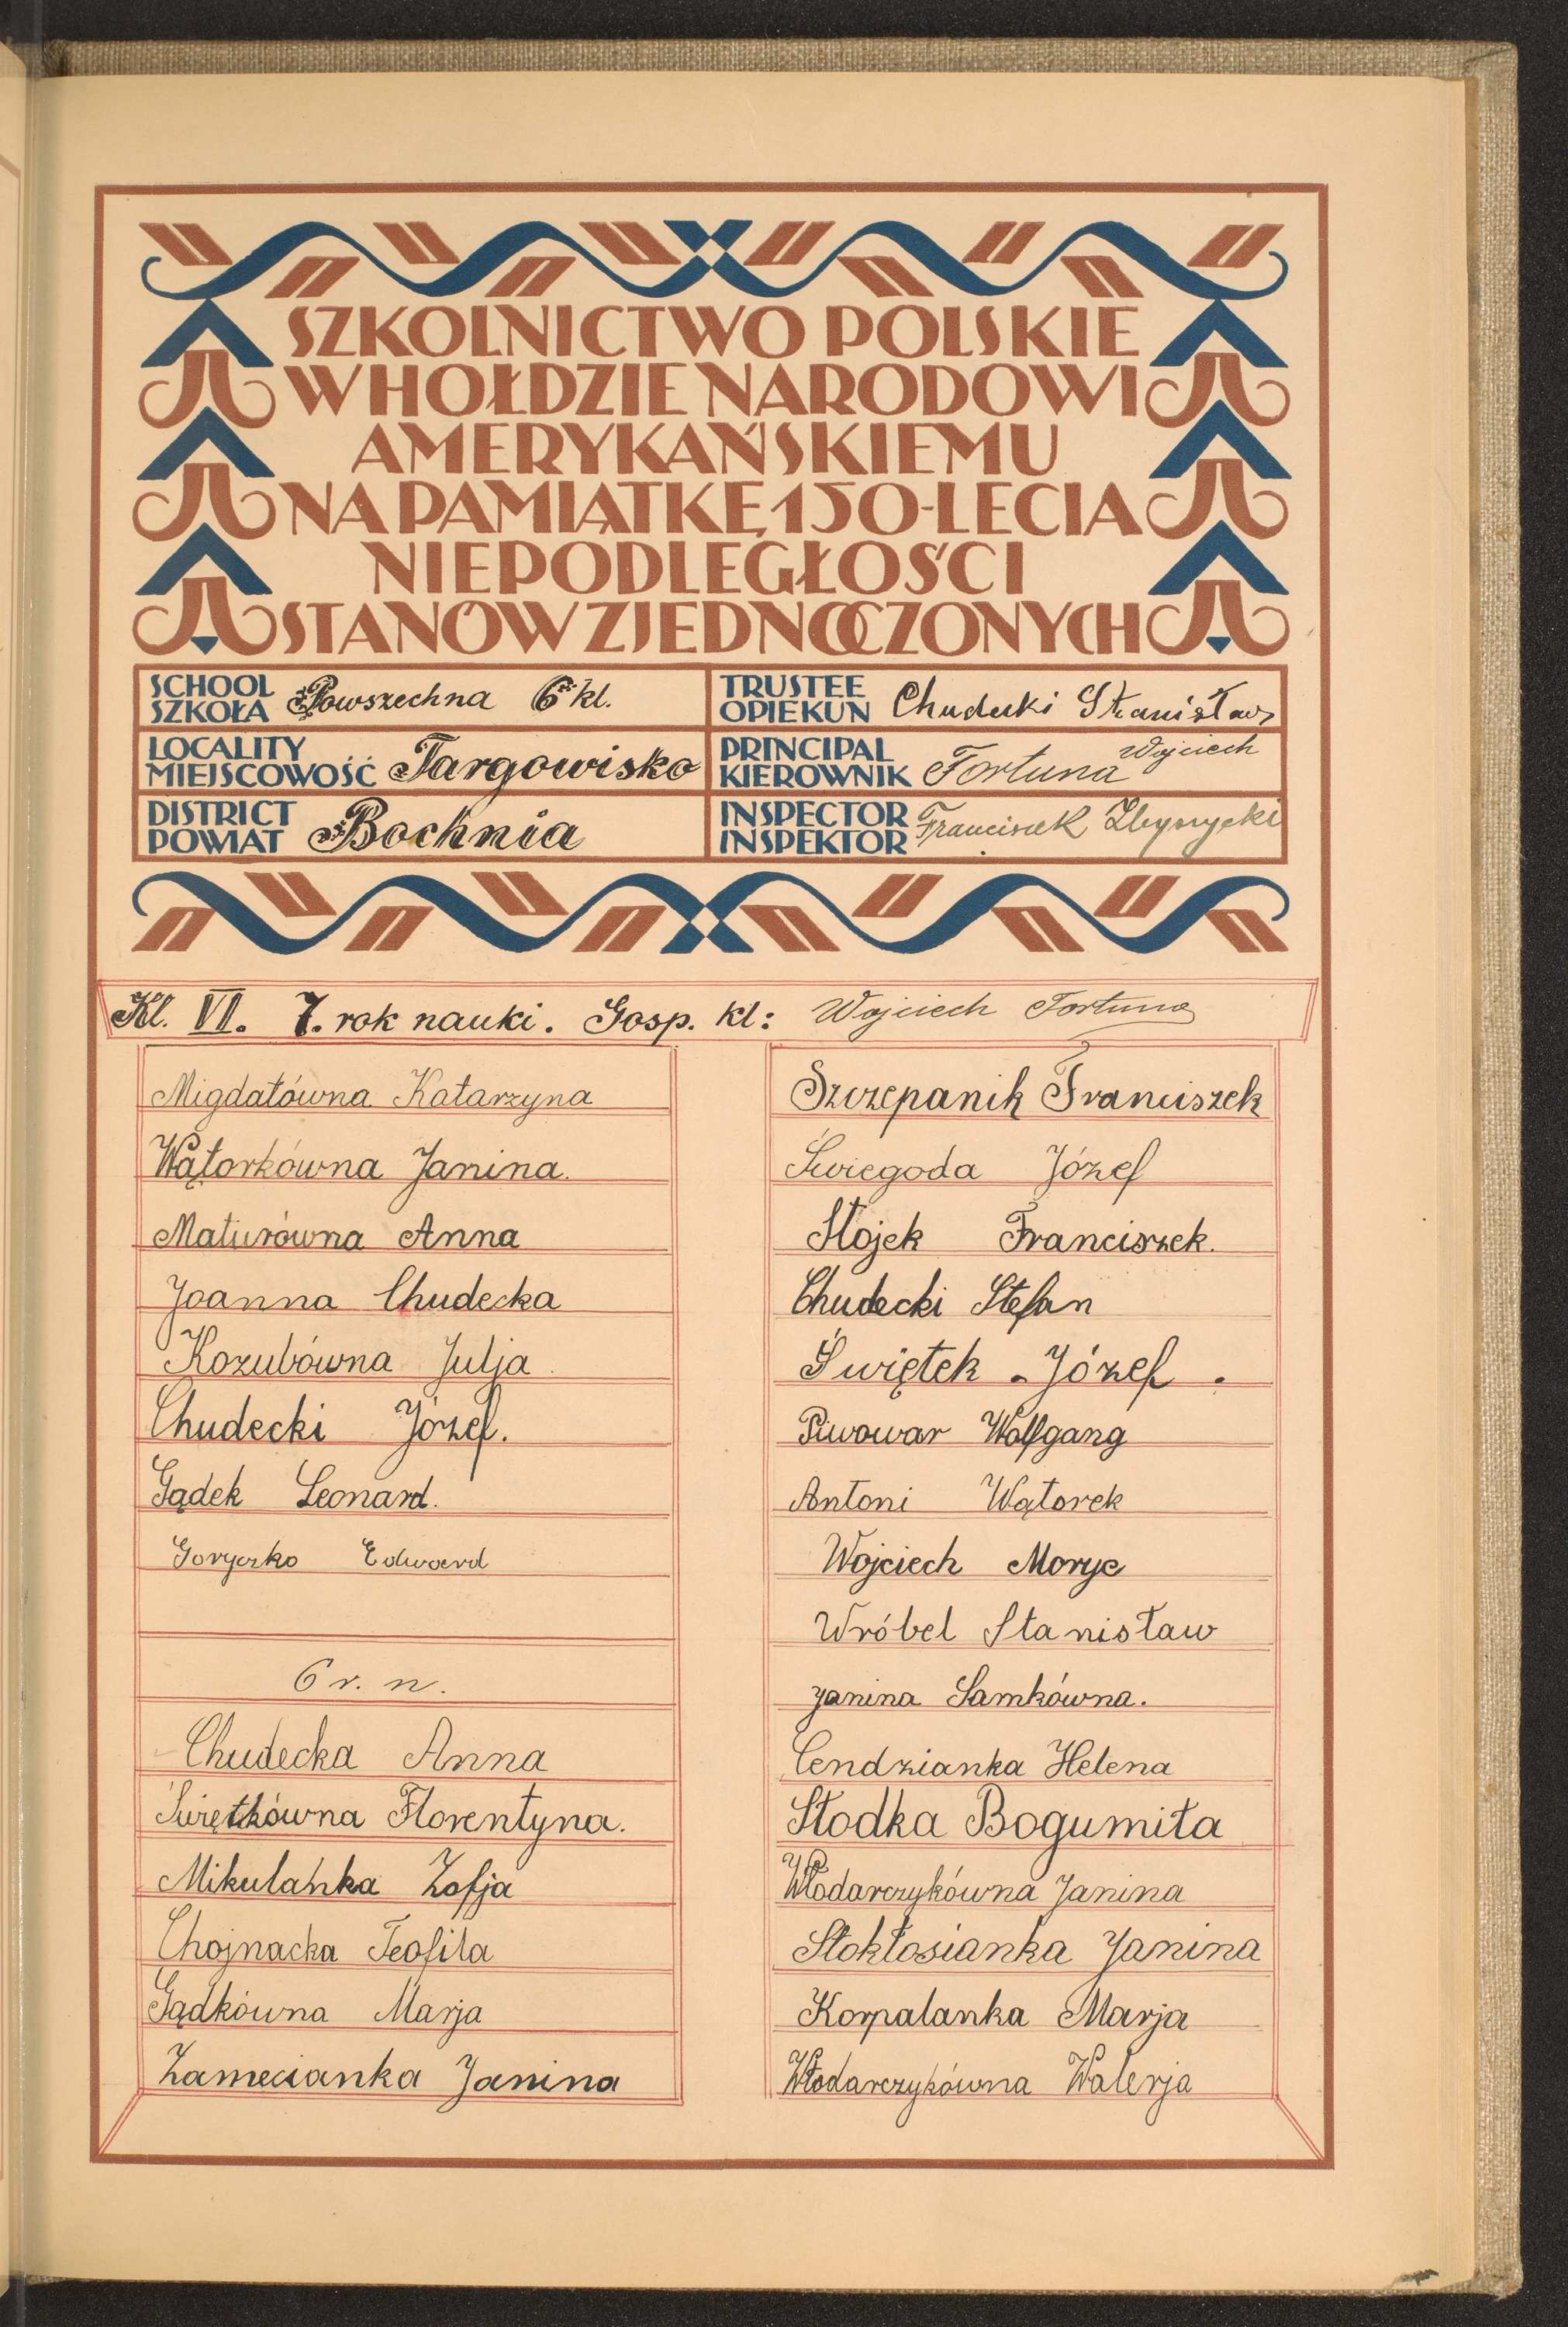 SZKOLNICTWO POLSKIE
W HOŁDZIE NARODOWI
AMERYKAŃSKIEMU
NA PAMIĄTKĘ 150-LECIA
NIEPODLEGŁOŚCI
STANÓW ZJEDNOCZONYCH
SCHOOL
SZKOŁA Powszechna 6 kl.
LOCALITY
MIEJSCOWOŚĆ Targowisko
DISTRICT
POWIAT Bochnia
TRUSTEE
OPIEKUN Chudecki Stanisław
PRINCIPAL
KIEROWNIK Fortuna Wojciech
INSPECTOR
INSPEKTOR Franciszek
Kl. VI. 7. rok nauki. Gosp. kl: Wojciech Fortuna
Migdałówna Katarzyna
Wątorkówna Janina.
Maturówna Anna
Joanna Chudecka
Kozubówna Julja
Chudecki Józef.
Gądek Leonard.
Goryczko Edward
6 r. n.
Chudecka Anna
Świętkówna Florentyna.
Mikulanka Zofja
Chojnacka Teofila
Gądkówna Marja
Zamecianka Janina
Szczepanik Franciszek
Świegoda Józef
Stojek Franciszek.
Chudecki Stefan
Świętek Józef.
Piwowar Wolfgang
Antoni Wątorek
Wojciech Moryc
Wróbel Stanisław
Janina Samkówna.
Cendzianka Helena
Słodka Bogumiła
Włodarczykówna Janina
Stokłosianka Janina
Korpalanka Marja
Włodarczykówna Walerja